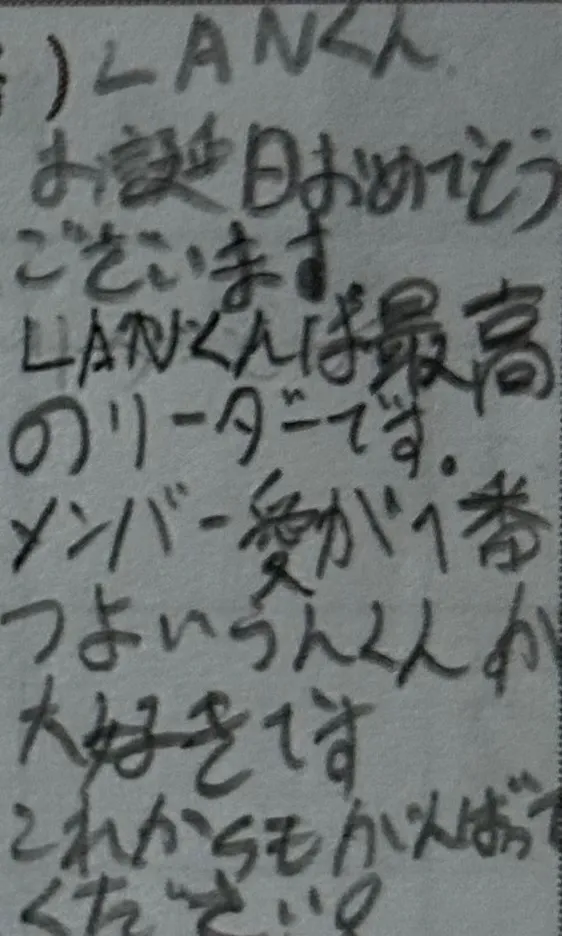 )LANくん
お誕生日おめでとう
ございます
LANくんは最高
のリーダーです。
メンバー愛が1番
つよいらんくんが
大好きです
これからもがんばって
ください!